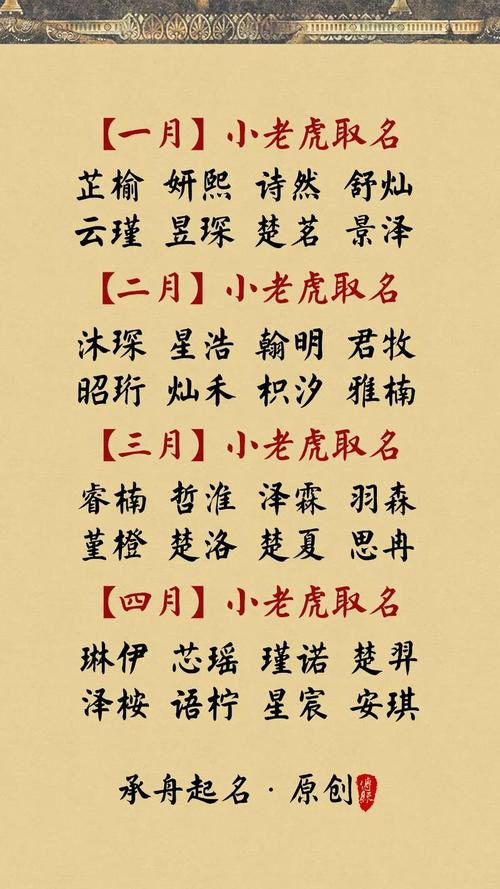 【一月】小老虎取名
芷榆 妍熙 诗然 舒灿
云瑾 昱琛 楚茗 景泽
【二月】小老虎取名
沐琛 星浩 翰明 君牧
昭珩 灿禾 枳汐 雅楠
【三月】小老虎取名
睿楠 哲淮 泽霖 羽森
堇橙 楚洛 楚夏 思冉
【四月】小老虎取名
琳伊 芯瑶 瑾诺 楚羿
泽桉 语柠 星宸 安琪
承舟起名·原创